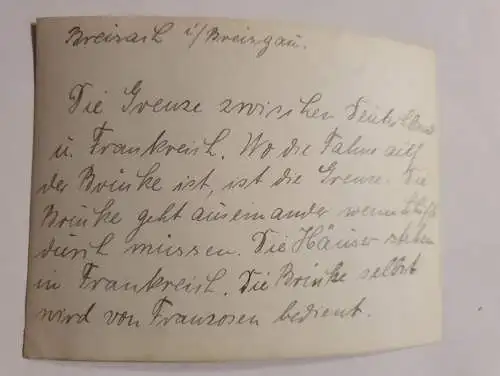 Breisach i/Breisgau.
Die Grenze zwischen Deutschland
u. Frankreich. Wo die Fahne auf
der Brücke ist, ist die Grenze. Die
Brücke geht auseinander wenn Schiffe
durch müssen. Die Häuser stehen
in Frankreich. Die Brücke selbst
wird von Franzosen bedient.